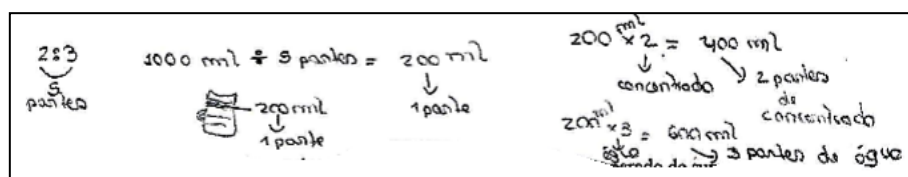 2:3
5
partes
1000 ml ÷ 5 partes = 200 ml
1 parte
200ml
1 parte
200 ml × 2 = 400 ml
concentrado
2 partes
de
concentrado
200 ml × 3 = 600 ml
3 partes de água